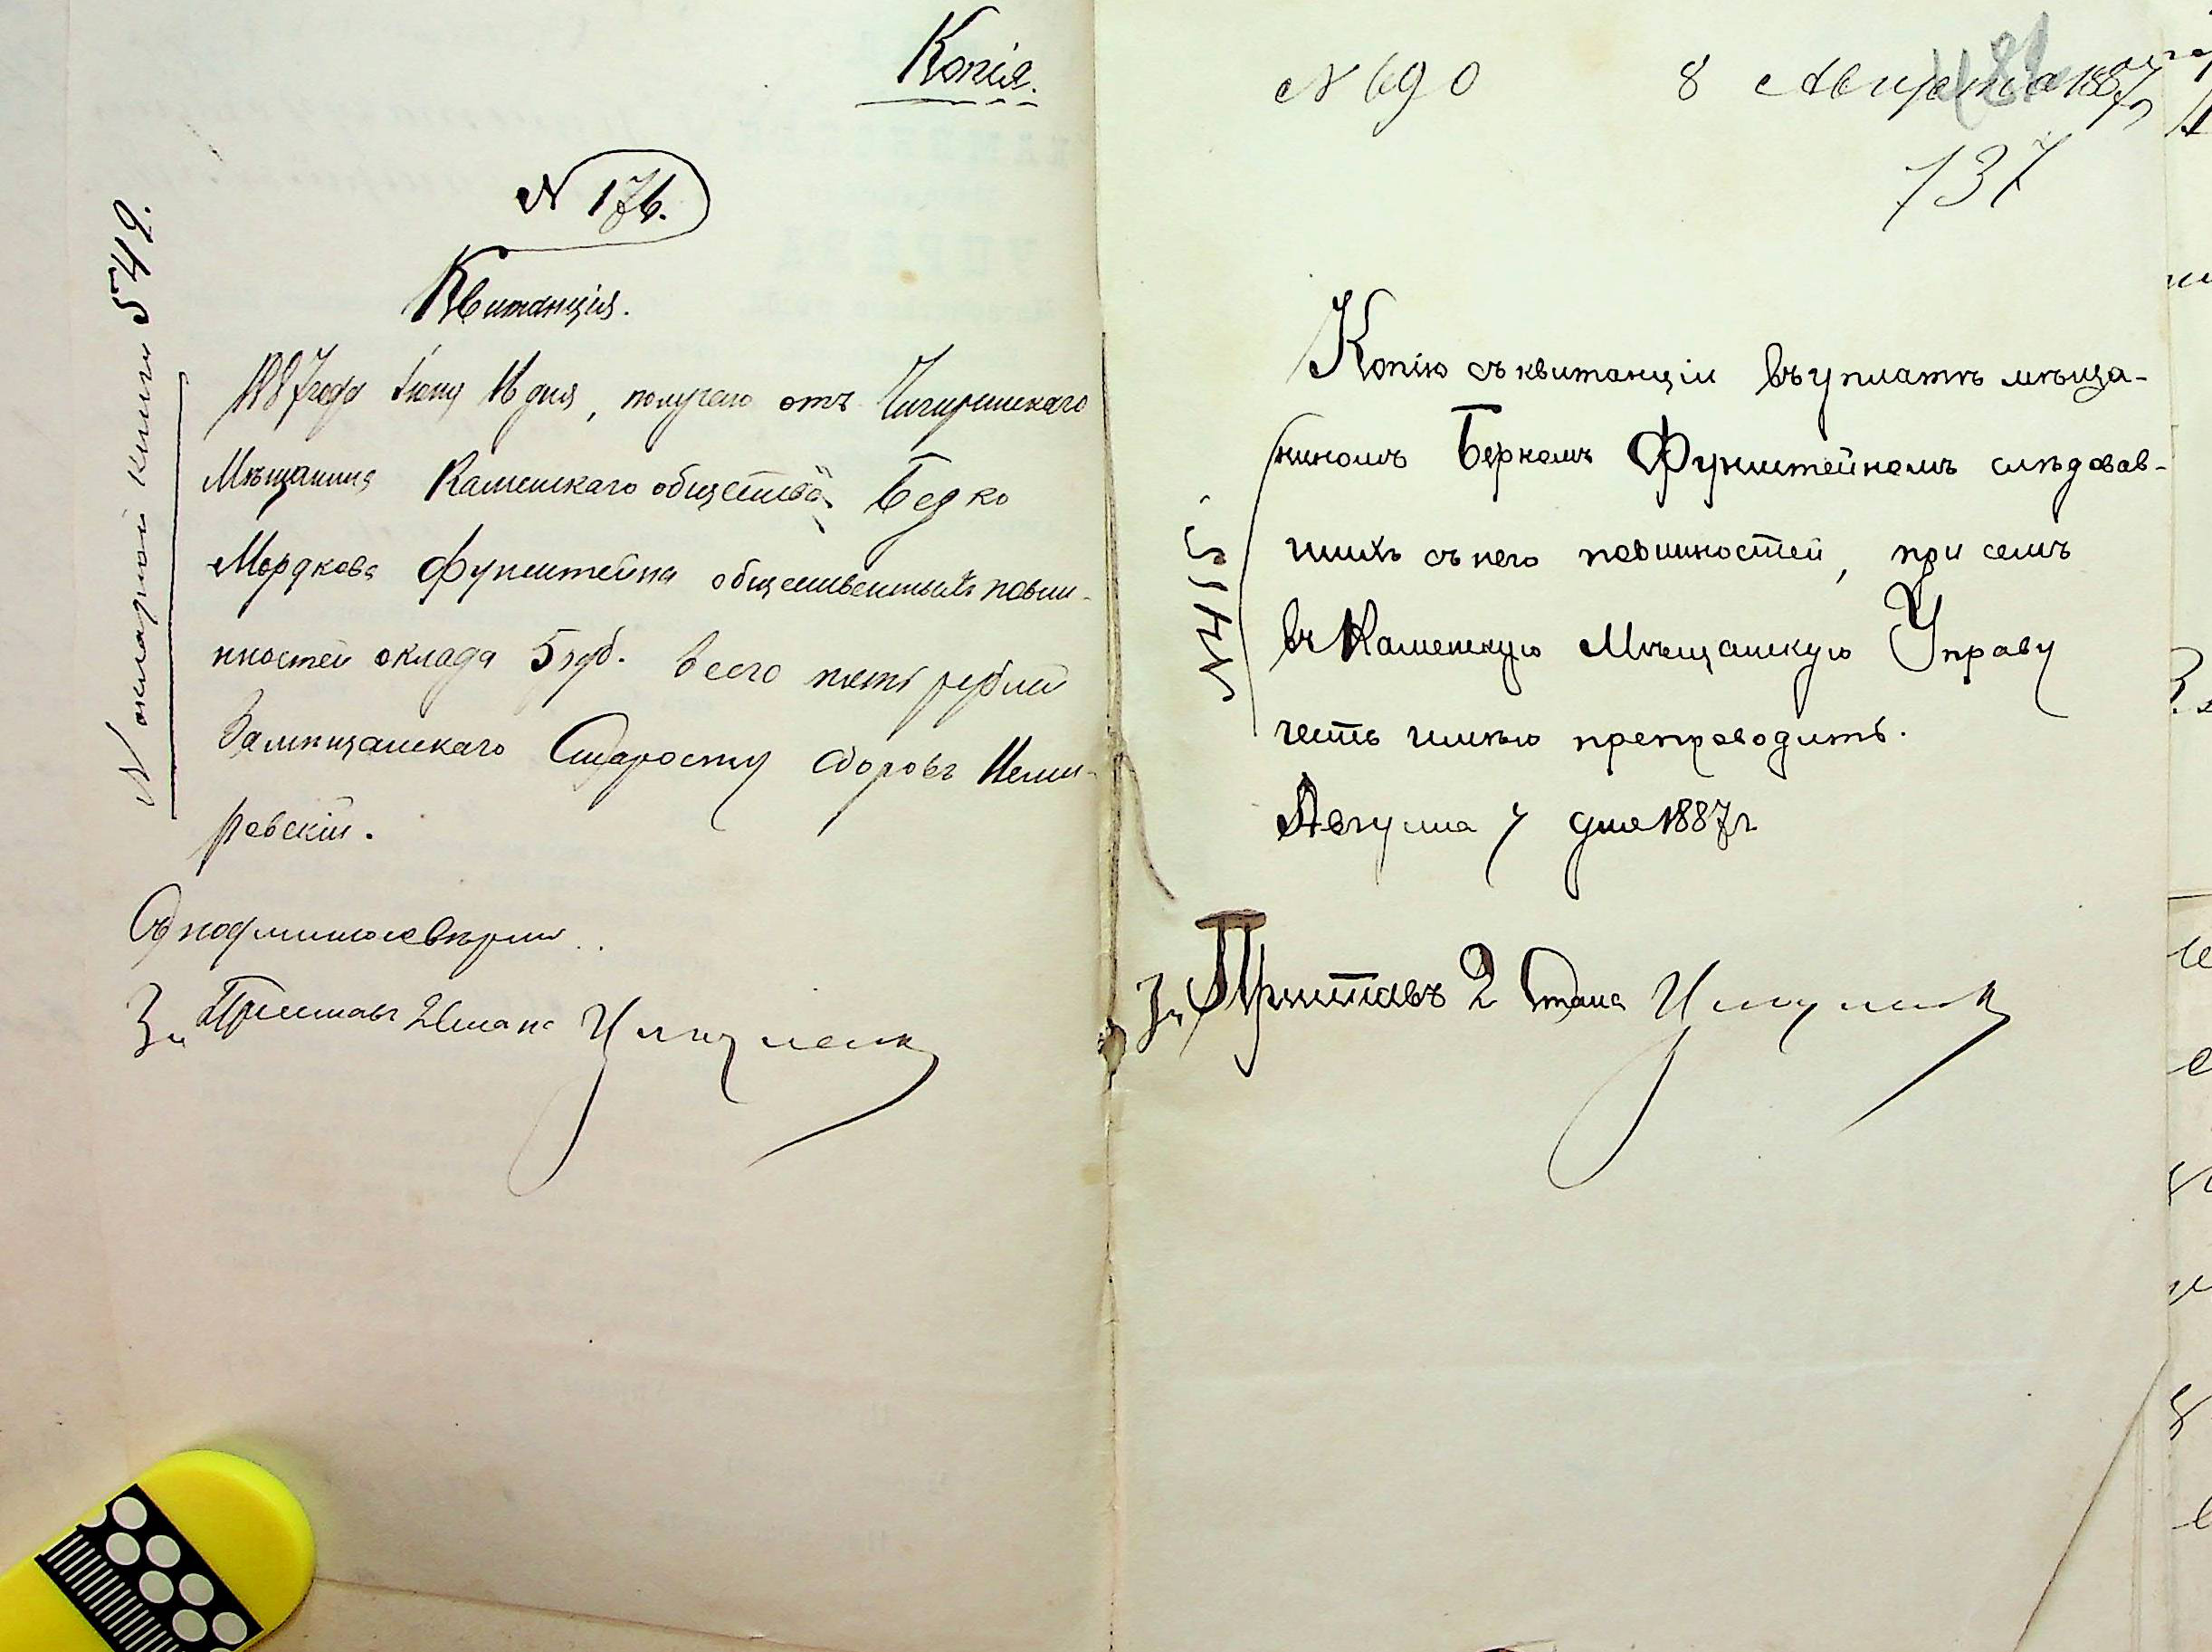 Копія.
№ 176.
Квитанція.
№ окладной книги 549.
1887 года Іюня 16 дня, получено отъ Чигиринскаго
Мѣщанина Каменскаго общества Берко
Мордкова Фунштейна общественныхъ повин-
ностей оклада 5 руб. всего пять рублей
Замѣщанскаго Старосту сборовъ Неми-
ровскій.
Съ подлиннымъ вѣрно
За Приставъ 2 Стана
№ 690 8 Августа 1887 г
137
Копію съ квитанціи въ уплатѣ мѣща-
ниномъ Беркомъ Фунштейномъ слѣдовав-
шихъ съ него повинностей, при семъ
въ Каменскую Мѣщанскую Управу
честь имѣю препроводить.
Августа 7 дня 1887 г
За Приставъ 2 Стана